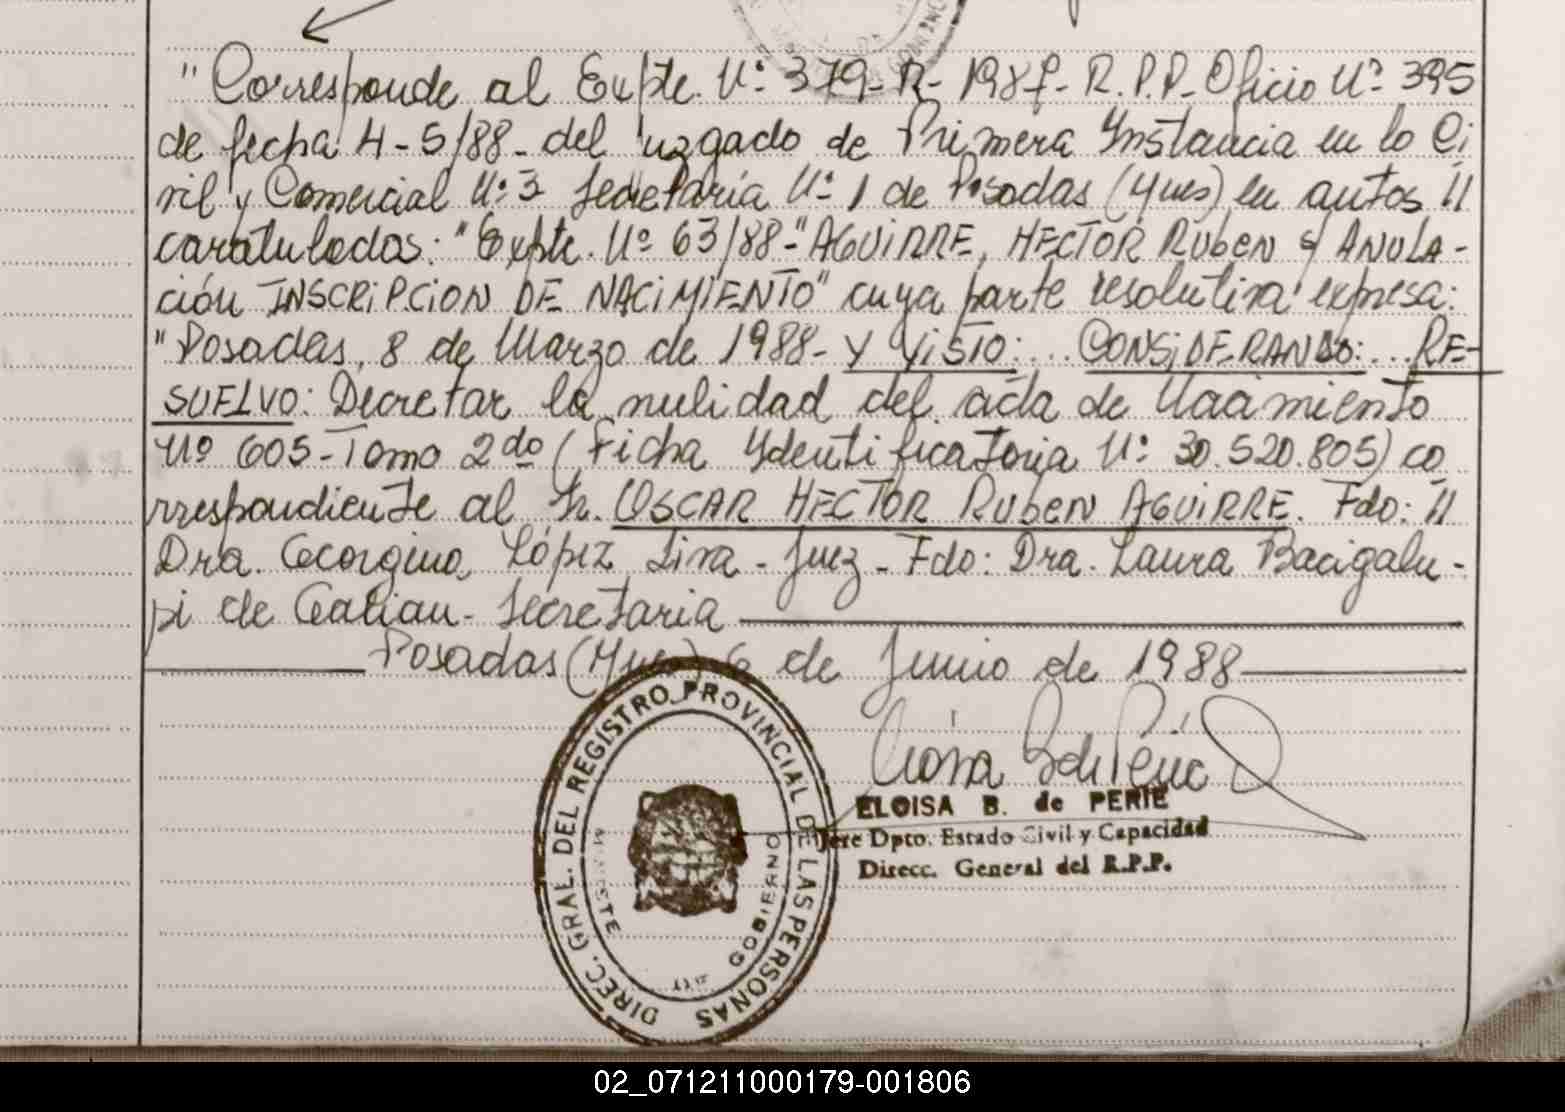 "Corresponde al Expte. Nº 379-R-1987- R.P.P. Oficio Nº 395
de fecha 4-5/88- del Juzgado de Primera Instancia en lo Ci
vil y Comercial Nº 3 Secretaría Nº 1 de Posadas (Mnes) en autos //
caratulados: "Expte. Nº 63/88-"AGUIRRE, HECTOR RUBEN s/ ANULA-
ción INSCRIPCION DE NACIMIENTO" cuya parte resolutiva expresa:
"Posadas, 8 de Marzo de 1988- Y VISTO:... CONSIDERANDO:... RE-
SUELVO: Decretar la nulidad del acta de Nacimiento
Nº 605-Tomo 2do (Ficha Identificatoria Nº 30.520.805) co
rrespondiente al Sr. OSCAR HECTOR RUBEN AGUIRRE. Fdo: //
Dra. Georgina López Liva - Juez - Fdo: Dra. Laura Bacigalu-
pi de Secretaria
Posadas (Mnes) 6 de Junio de 1988
DIREC. GRAL. DEL REGISTRO PROVINCIAL DE LAS PERSONAS
GOBIERNO
ELOISA B. de PERIE
Jefe Dpto. Estado Civil y Capacidad
Direcc. General del R.P.P.
02_071211000179-001806